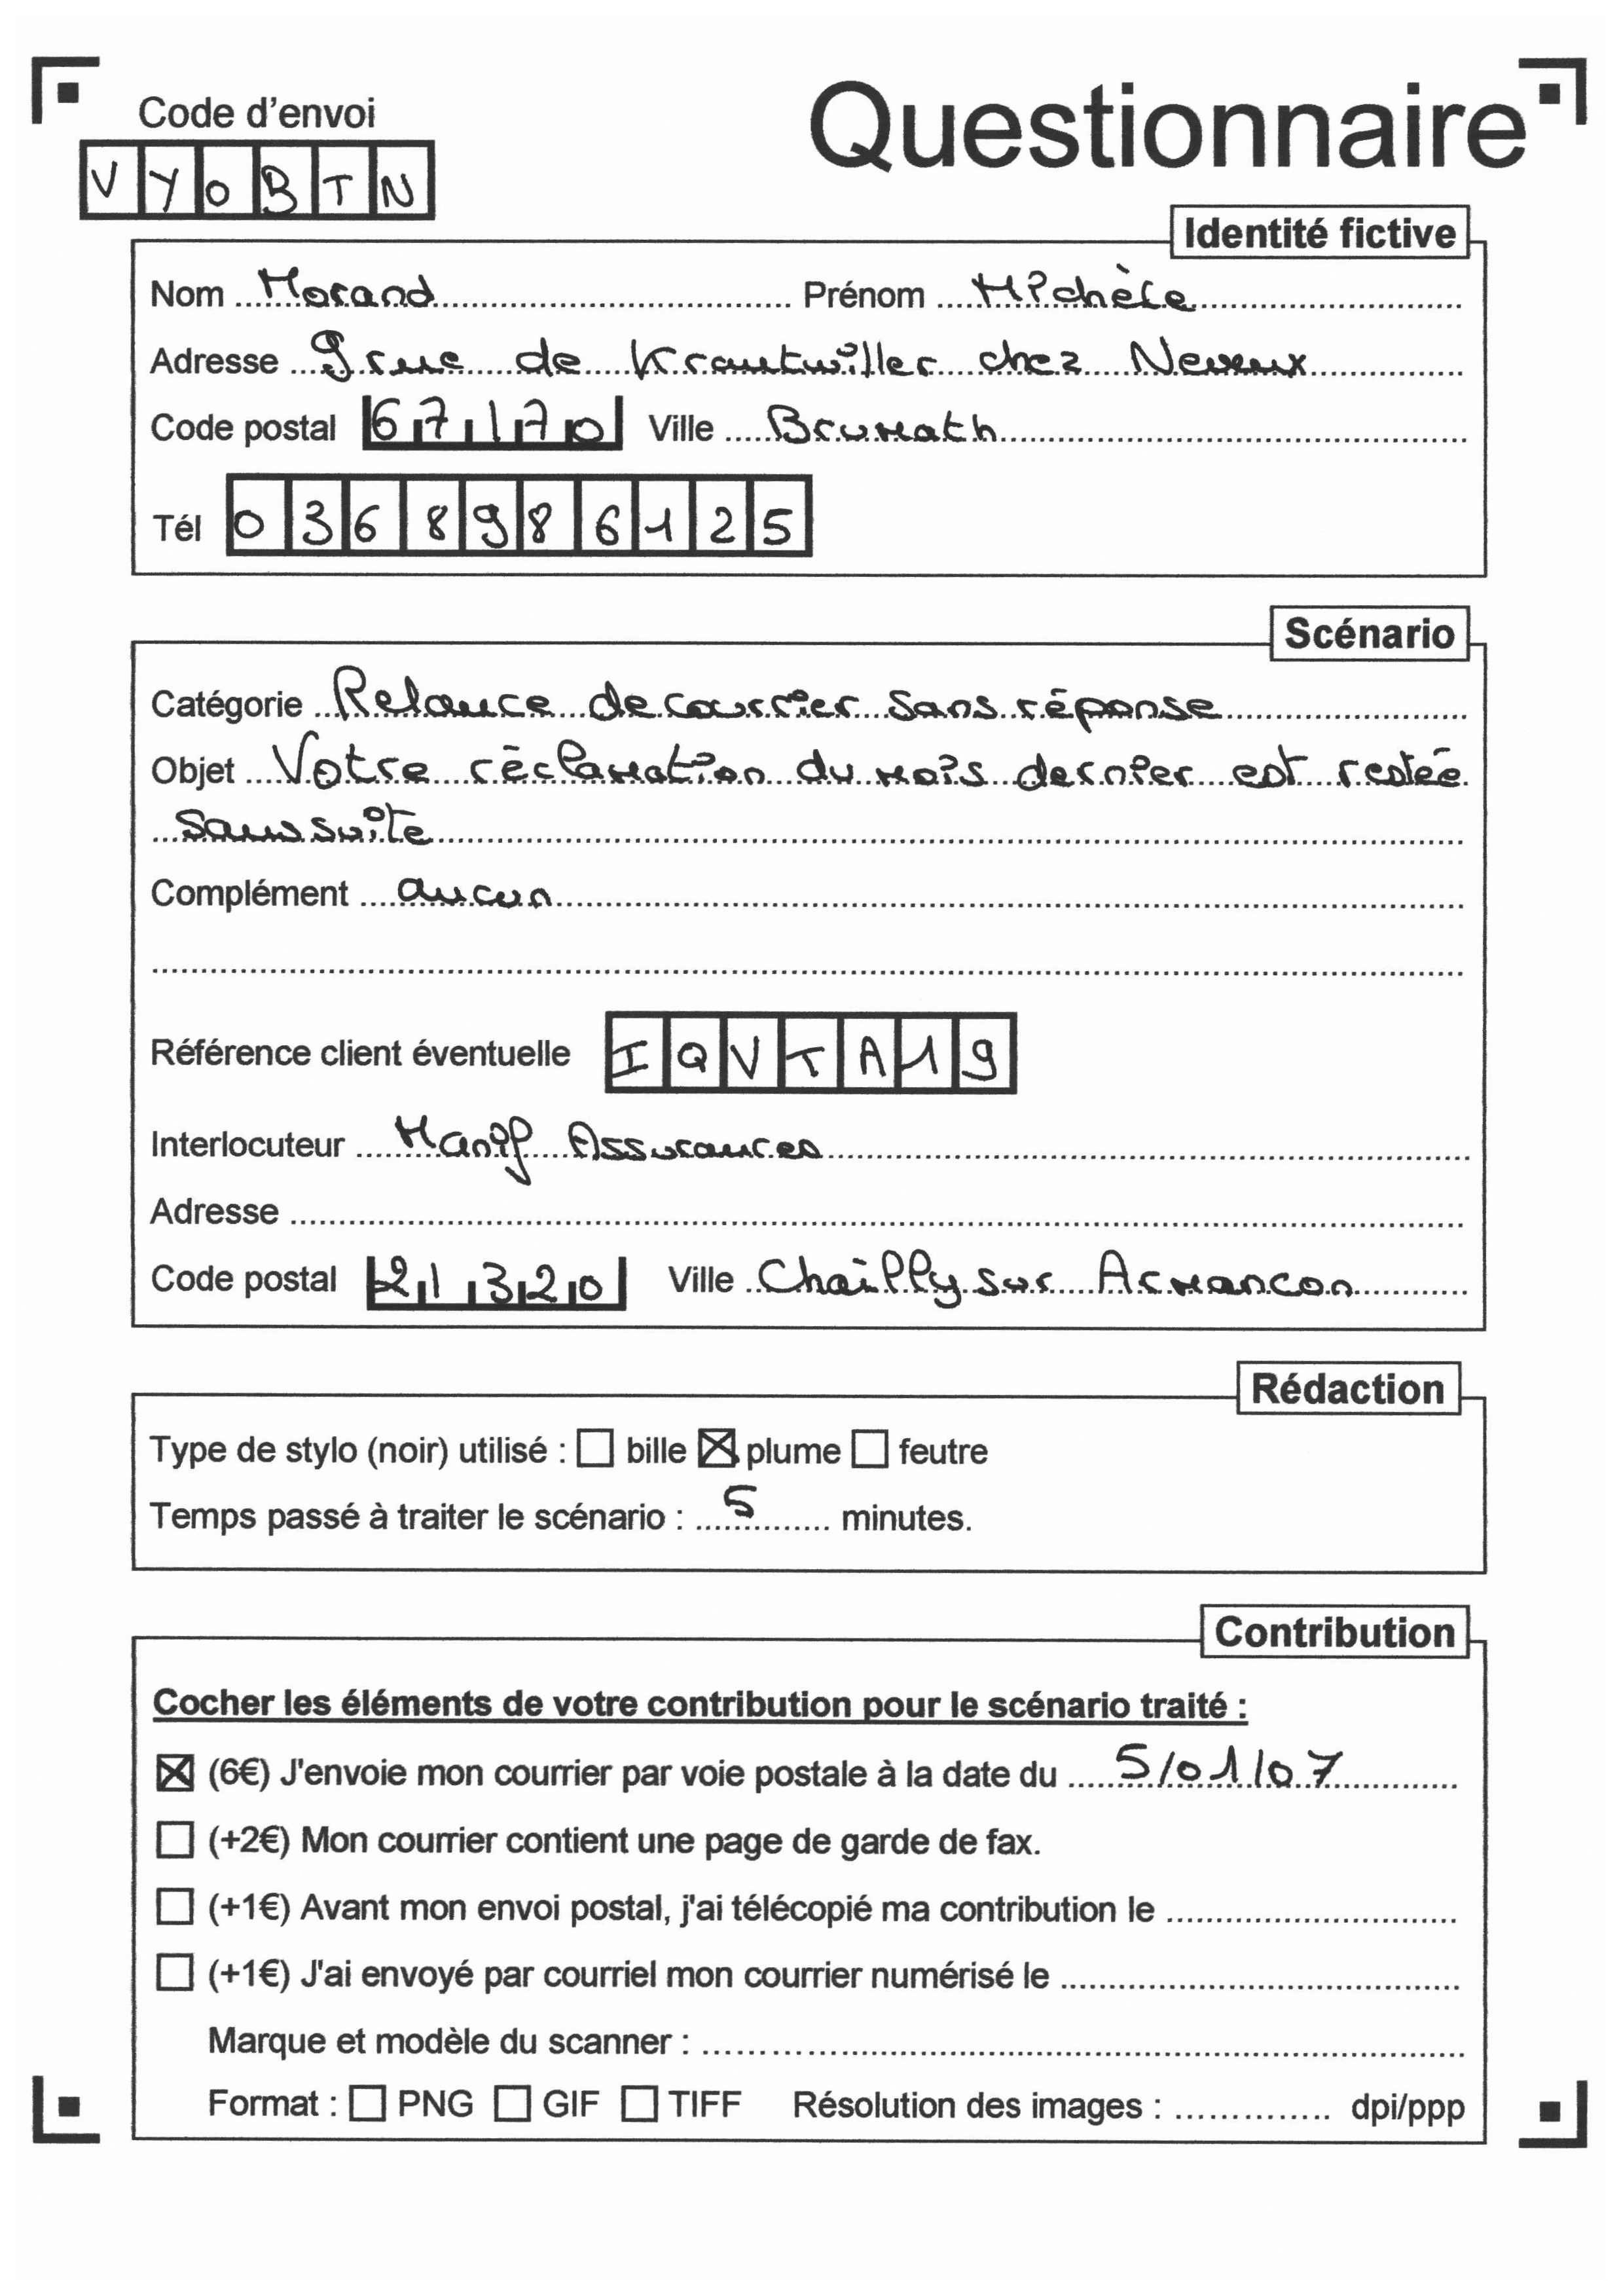 Code d'envoi
Questionnaire
VYOBTN
Identité fictive
Nom Morand Prénom Michèle
Adresse 9 rue de Krautwiller chez Neveux
Code postal 67170 Ville Brumath
Tél 0368986125
Scénario
Catégorie Relance de courrier sans réponse
Objet Votre réclamation du mois dernier est restée
sans suite
Complément aucun
Référence client éventuelle IQVTA19
Interlocuteur Manif Assurances
Adresse
Code postal 21320 Ville Chailly sur Armancon
Rédaction
Type de stylo (noir) utilisé : ☐ bille ☒ plume ☐ feutre
Temps passé à traiter le scénario : 5 minutes.
Contribution
Cocher les éléments de votre contribution pour le scénario traité :
☒ (6€) J'envoie mon courrier par voie postale à la date du 5/01/07
☐ (+2€) Mon courrier contient une page de garde de fax.
☐ (+1€) Avant mon envoi postal, j'ai télécopié ma contribution le
☐ (+1€) J'ai envoyé par courriel mon courrier numérisé le
Marque et modèle du scanner :
Format : ☐ PNG ☐ GIF ☐ TIFF Résolution des images : dpi/ppp